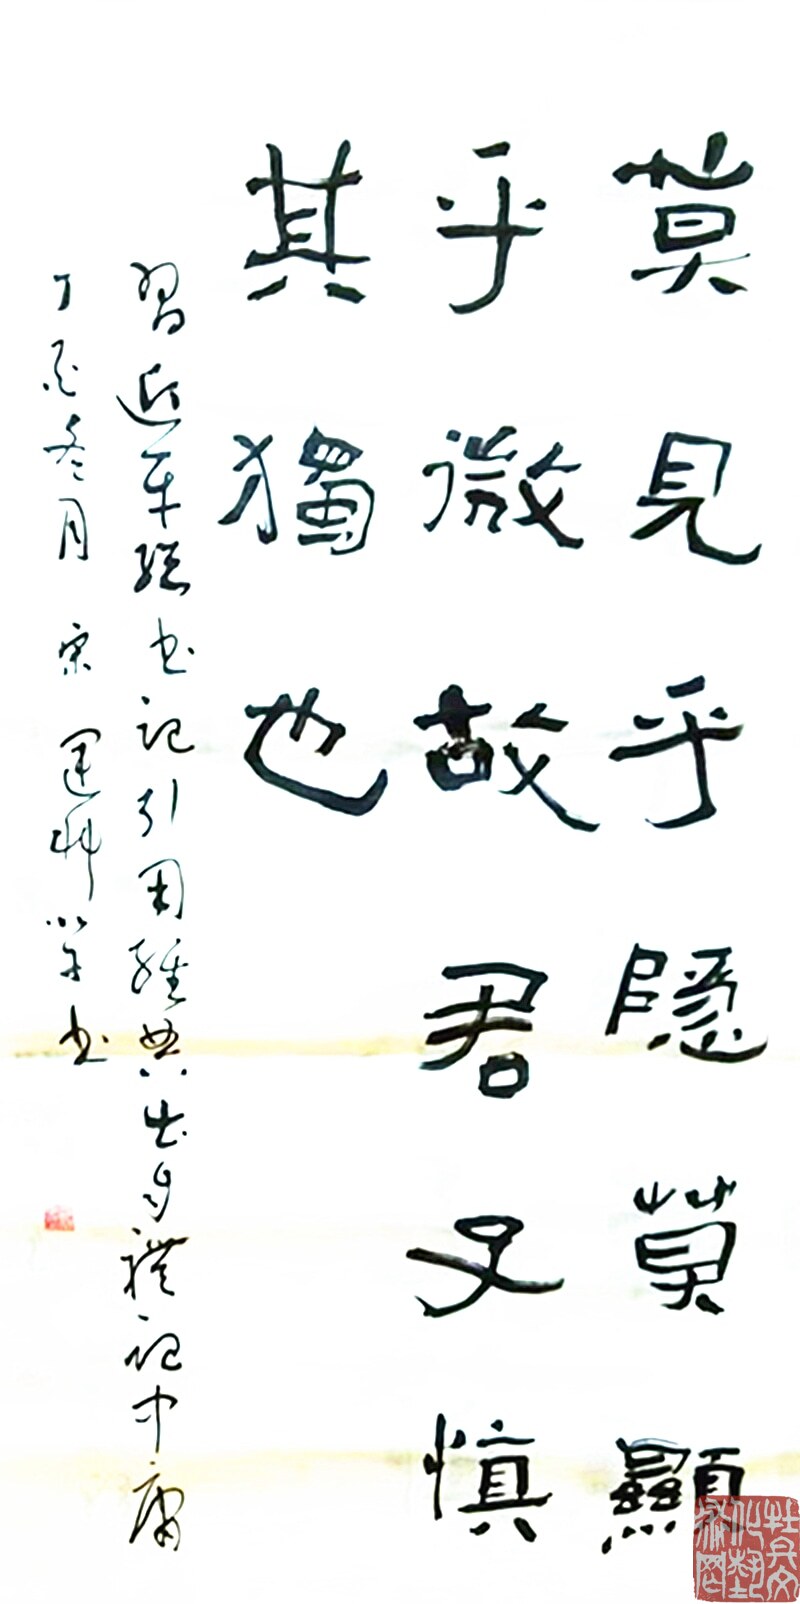 莫見乎隱莫顯
乎微故君子慎
其獨也
習近平總书記引用經典出自禮記中庸
丁酉冬月宋運 书